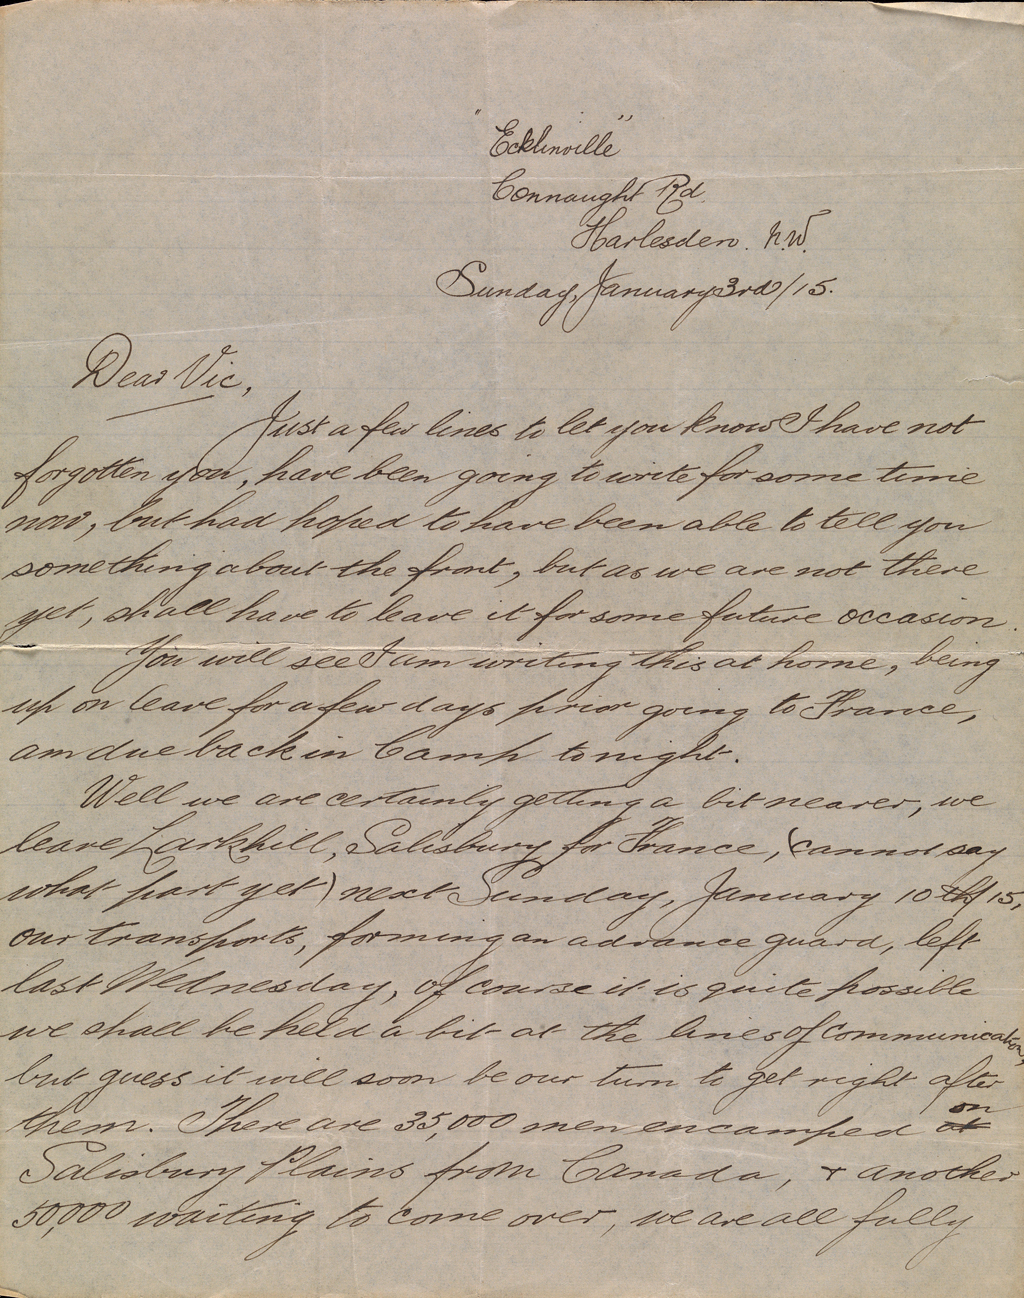 "Ecklinville"
Connaught Rd
Harlesden. N.W.
Sunday, January 3rd/15.
Dear Vic,
Just a few lines to let you know I have not
forgotten you, have been going to write for some time
now, but had hoped to have been able to tell you
something about the front, but as we are not there
yet, shall have to leave it for some future occasion.
You will see I am writing this at home, being
up on leave for a few days prior going to France,
am due back in Camp tonight.
Well we are certainly getting a bit nearer, we
leave Larkhill, Salisbury for France, (cannot say
what part yet) next Sunday, January 10th/15,
our transports, forming an advance guard, left
last Wednesday, of course it is quite possible
we shall be held a bit at the lines of communication,
but guess it will soon be our turn to get right after
them. There are 35,000 men encamped at on
Salisbury Plains from Canada, & another
50,000 waiting to come over, we are all fully